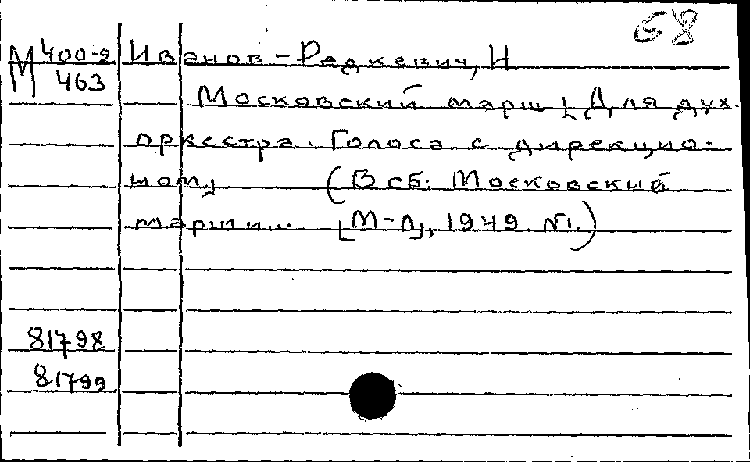 68
М 400-9 Иванов-Радкевич, Н
463
Московский марш [Для дух.
оркестра. Голоса с дирекцио-
ном] (В сб: Московский
марши... [М-Л], 1949. №1.)
81798
81799